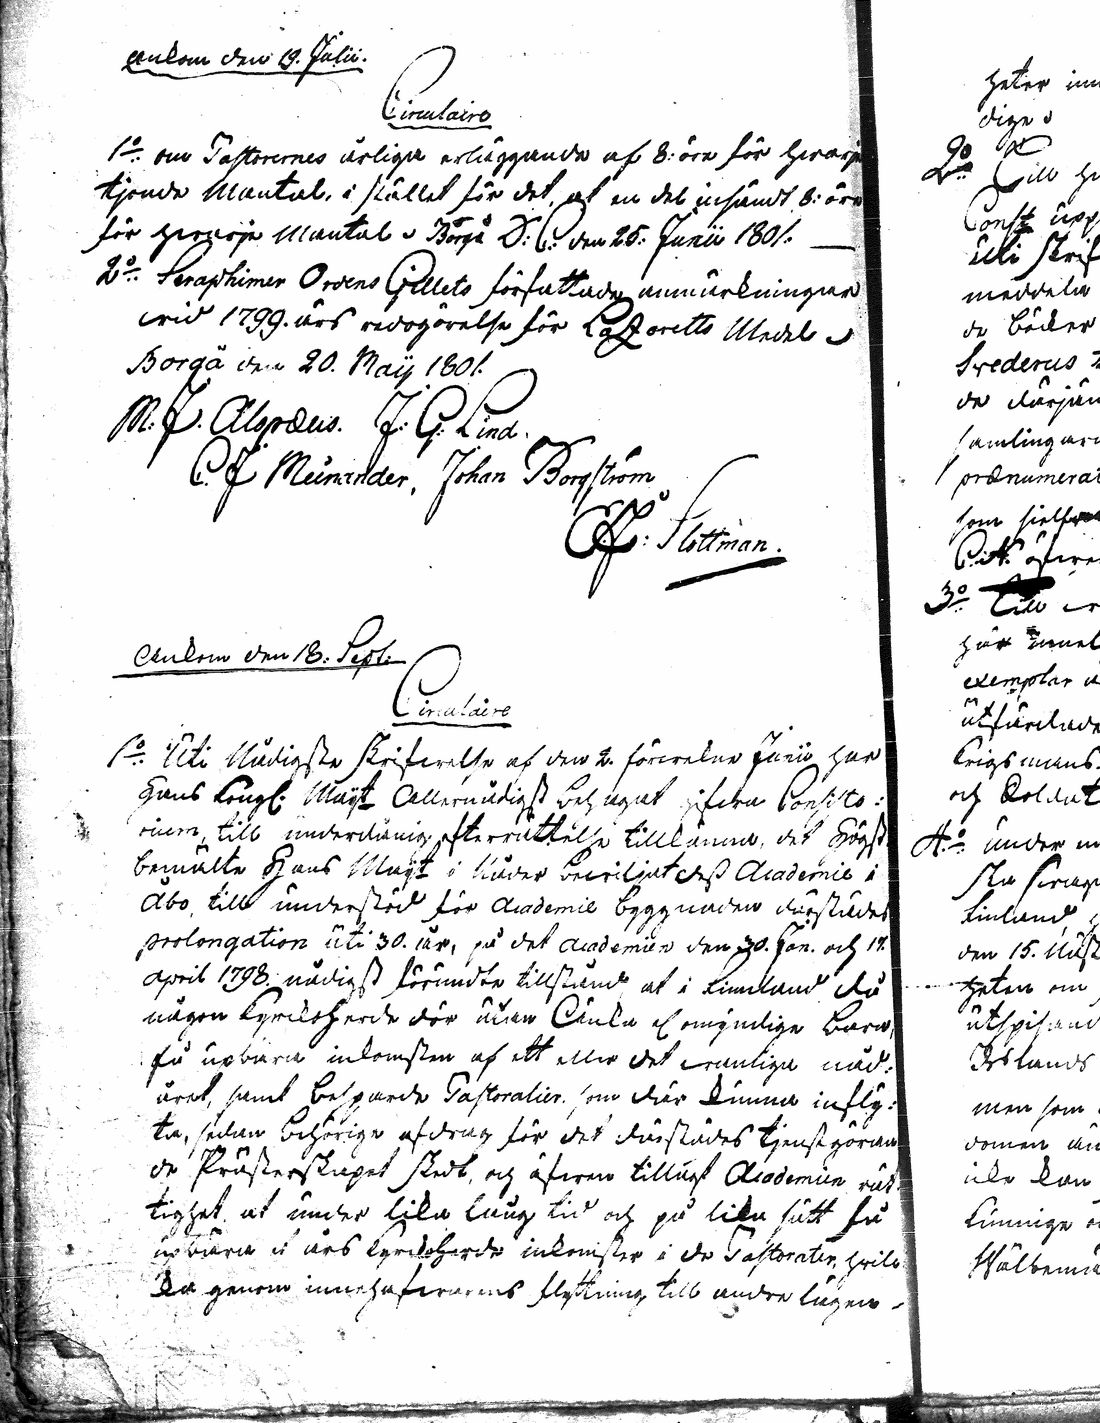 ankom den 19. Julii.
Circulaire
1:o om Pastorernes årliga erläggande af 8: öre för hvarje
tjende Mantal, i stället för det, at en del insändt 8: öre
för hvarje Mantal. Borgå D: C: den 25: Junii 1801.
2:o Seraphimer Ordens Gillets författade anmärkningar
vid 1799. års redogörelse för Lazaretts Medel.
Borgå den 20. Maij 1801.
M. J. Alopæus. J. G. Lind.
C. J. Meinander, Johan Borgström
Slottman.
ankom den 18. Sept.
Circulaire
1:o Uti Nådigste Skrifvelse af den 2. förvekne Junii har
Hans Kongl. Maijt Allernådigst behagat gifva Consisto:
rium, till underdånig efterrättelse tillkänna, det Högst
bemälte Hans Maijt i Nåder beviljat dess Academie i
Åbo, till understöd för Academie byggnaden därstädes
prolongation uti 30. år, på det Academien den 30. Jan. och 17.
April 1798. nådigst förundte tillstånd, at i Finnland, då
någon Kyrckoherde dör utan Enka el omyndige barn,
få upbära inkomsten af ett eller det vanliga nåd:
året, samt besparde Pastoralier, som där kunna infly:
ta, sedan behörige afdrag för det därstädes tjenstgöran
de Prästerskapet skedt, och äfven tillagt Academien rät
tighet, at under lika lång tid och på lika sätt få
upbära et års Kyrckoherde inkomster i de Pastorater, hvil
ka genom innehafvarens flyttning till andra lägen-
heter inn
dige
2:o Till
Const upp
uti Skrif
meddela
de böcker
Svederus
de därjäm
samlingar
prænumerat
som sielf
äfven
3:o Till
här
exemplar
utfärdade
Krigsmans
och Soldat
4:o under
ska
Finland,
den 15.
heten om
utspisand
Islands
men som
domen än
icke kan
Finnige
Wälbemä